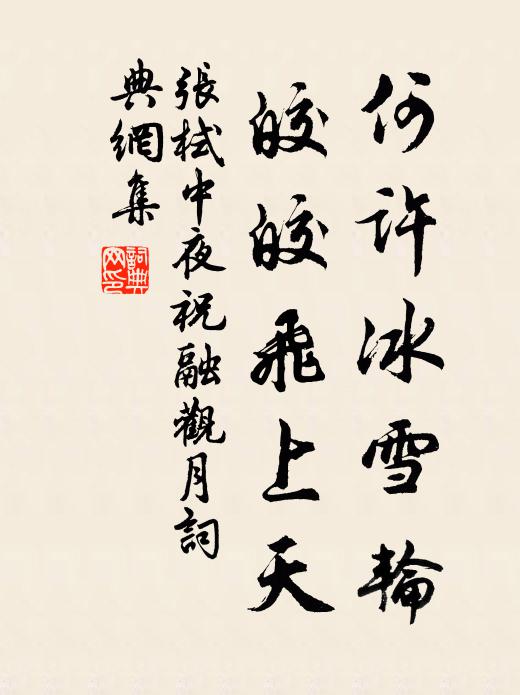 何許冰雪輪
皎皎飛上天
張栻中夜祝融觀月詞
典網集
詞典網印